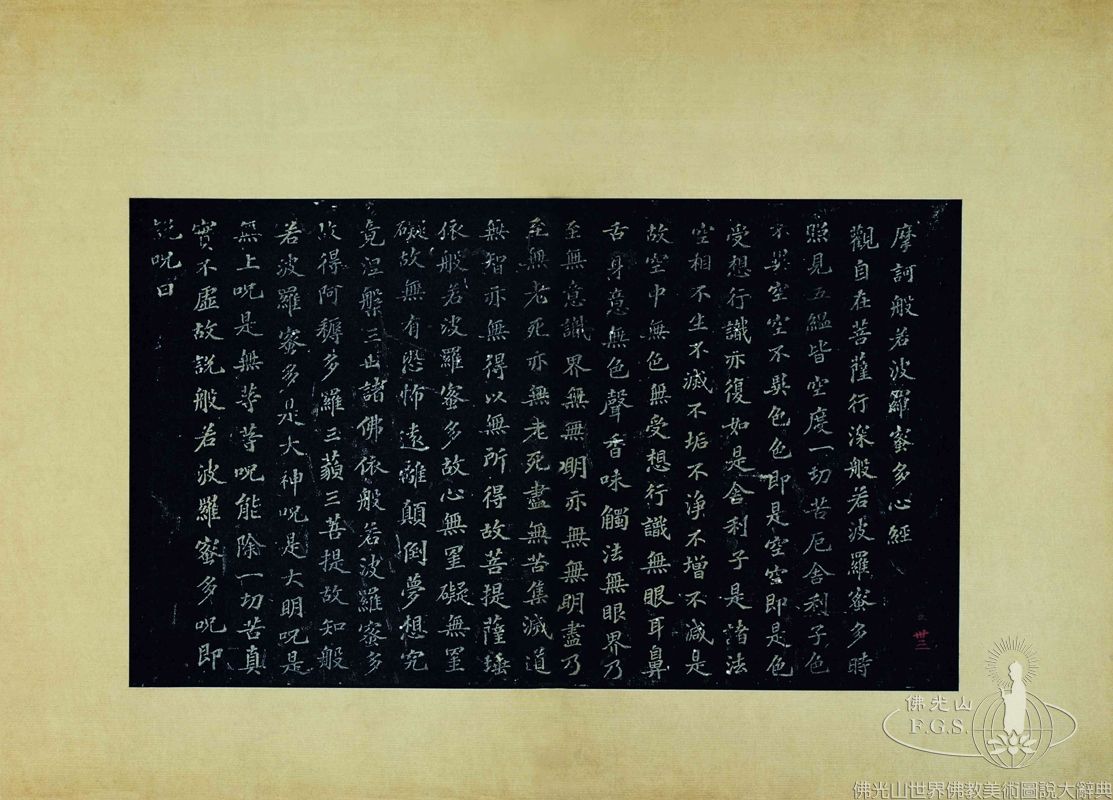 摩訶般若波羅蜜多心經
觀自在菩薩行深般若波羅蜜多時
照見五緼皆空度一切苦厄舍利子色
不異空空不異色色即是空空即是色
受想行識亦復如是舍利子是諸法
空相不生不滅不垢不淨不增不减是
故空中無色無受想行識無眼耳鼻
舌身意無色聲香味觸法無眼界乃
至無意識界無無明亦無無明盡乃
至無老死亦無老死盡無苦集滅道
無智亦無得以無所得故菩提薩埵
依般若波羅蜜多故心無罣礙無罣
礙故無有恐怖遠離顛倒夢想究
竟涅槃三世諸佛依般若波羅蜜多
故得阿耨多羅三藐三菩提故知般
若波羅蜜多是大神呪是大明呪是
無上呪是無等等呪能除一切苦真
實不虛故説般若波羅蜜多呪即
説呪曰
卅三
佛光山
F.G.S.
佛光山世界佛教美術圖說大辭典